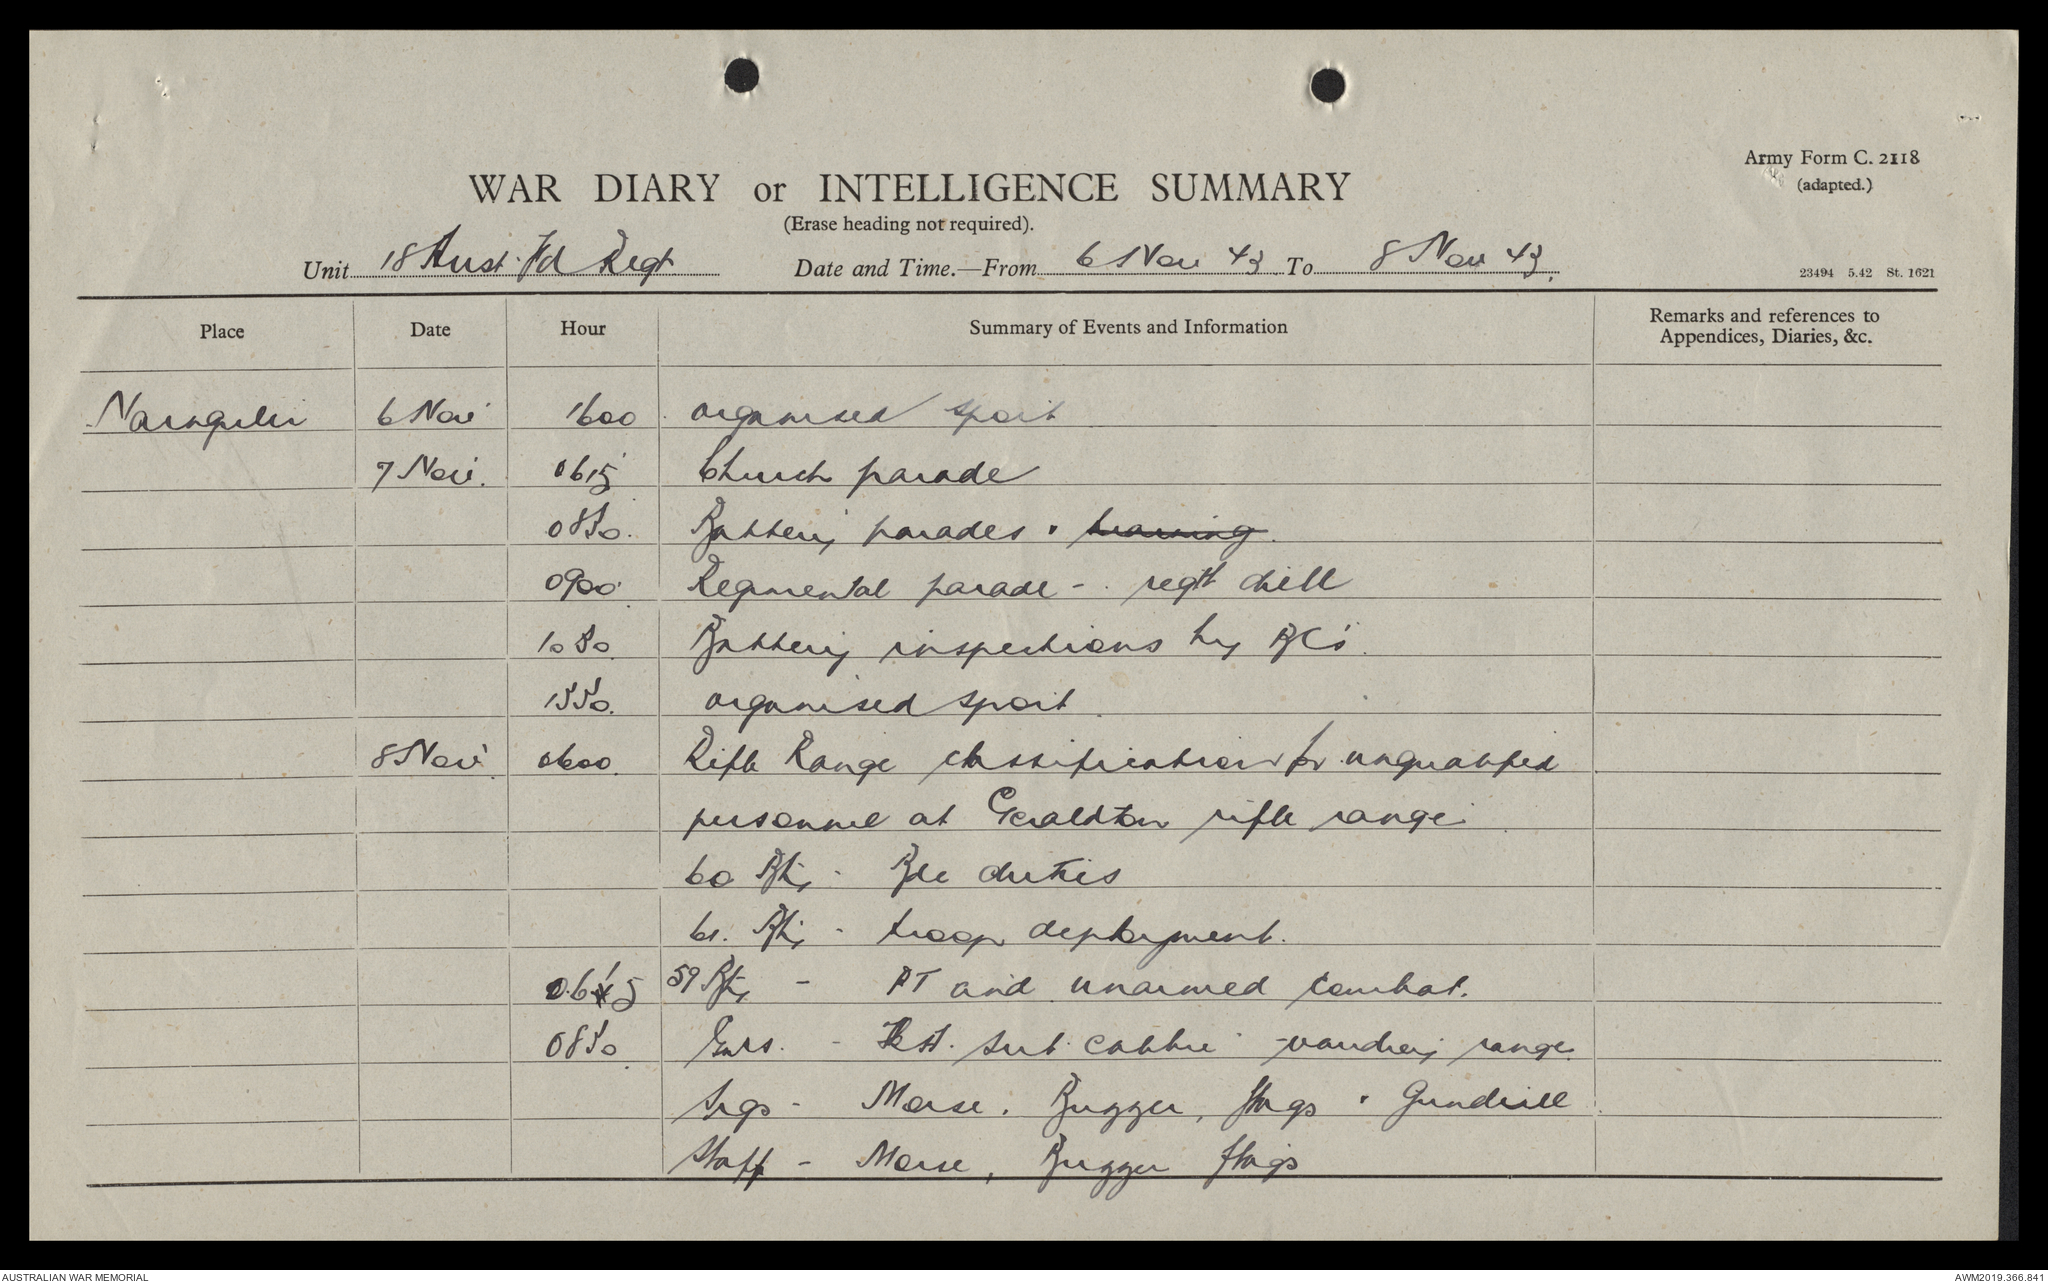 Army Form C. 2118
(adapted.)
WAR DIARY or INTELLIGENCE SUMMARY
(Erase heading not required).
Unit 18 Aust Fd Regt Date and Time.—From 6 Nov 43 To 8 Nov 43.
23494 5.42 St. 1621
Place Date Hour Summary of Events and Information Remarks and references to
Appendices, Diaries, &c.
Narngulu 6 Nov 1600 organised sport
7 Nov. 0615 Church parade
0830. Battery parades training.
0900. Regimental parade - regtl drill
1030. Battery inspections by BC's.
1330. organised sport.
8 Nov. 0600. Rifle Range classification for unqualified
personnel at Geraldton rifle range
60 Bty - duties
61. Bty - troop deployment.
0615 59 Bty - PT and unarmed combat.
0830. Gnrs. - Test. sub calibre range.
Sigs - Morse, Buzzer, flags Gundrill
Staff - Morse, Buzzer flags
AUSTRALIAN WAR MEMORIAL AWM2019.366.841